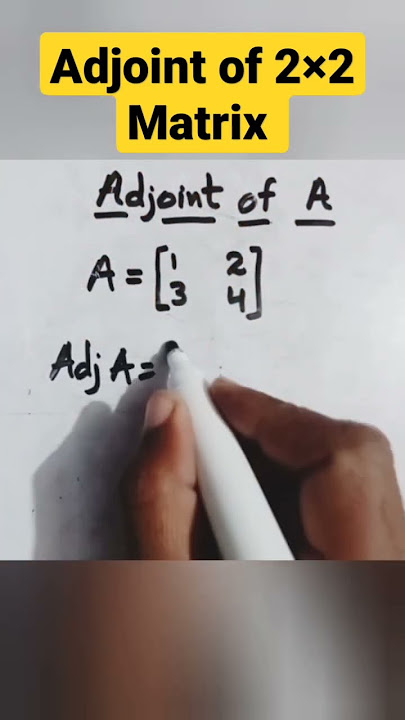 Adjoint of 2×2
Matrix
Adjoint of A
A = [1 2
3 4]
Adj A =